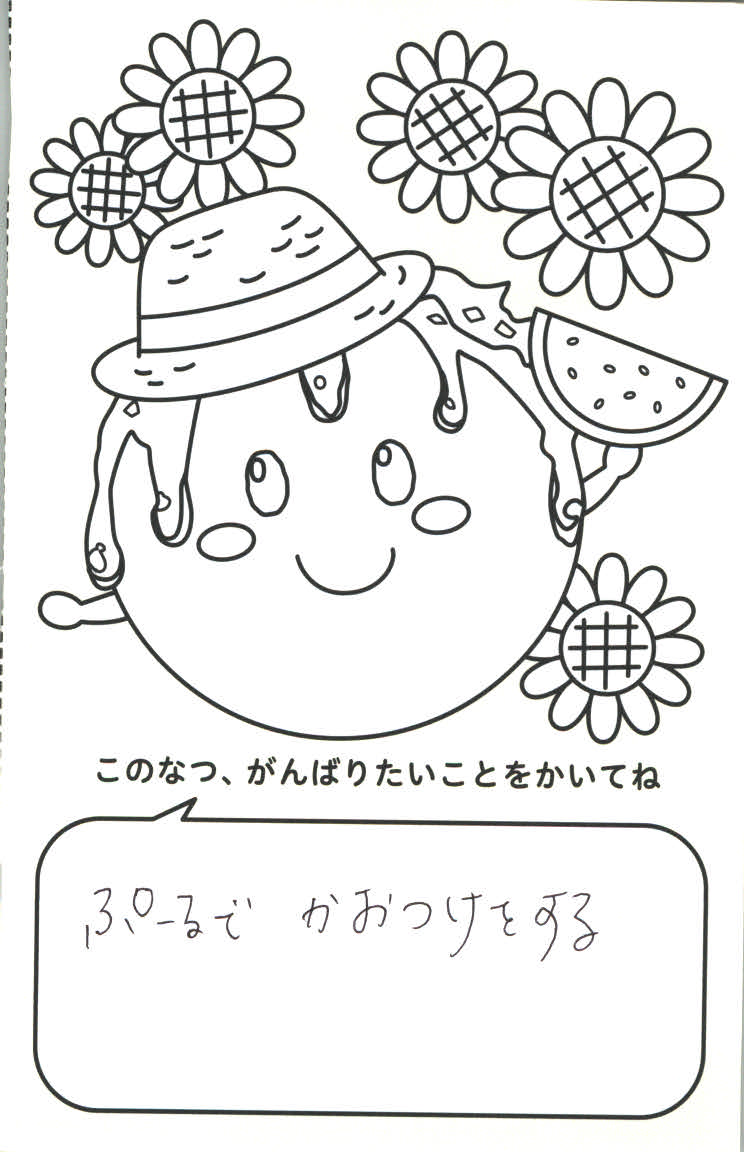 このなつ、がんばりたいことをかいてね
ぷーるで かおつけをする